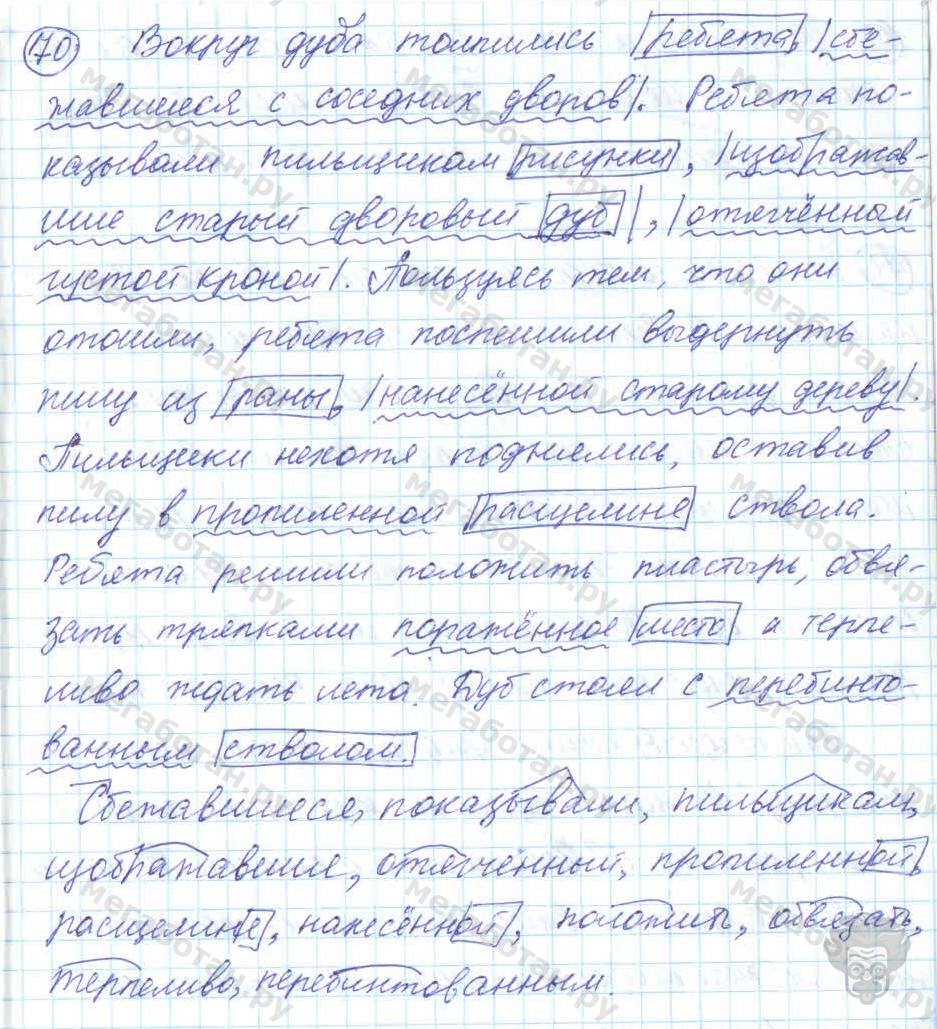 70 Вокруг дуба толпились |ребята|, |сбе-
жавшиеся с соседних дворов|. Ребята по-
казывали пильщикам рисунки, |изображав-
шие старый дворовый дуб|, |отягчённый
густой кроной|. Пользуясь тем, что они
отошли, ребята поспешили выдернуть
пилу из раны, |нанесённой старому дереву|.
Пильщики нехотя поднялись, оставив
пилу в пропиленной расщелине ствола.
Ребята решили положить пластырь, обвя-
зать тряпками поражённое место и терпе-
ливо ждать лета. Дуб стоял с перебинто-
ванным стволом.
Сбежавшиеся, показывали, пильщикам,
изображавшие, отягчённый, пропиленной,
расщелине, нанесённой, положить, обвязать,
терпеливо, перебинтованным.
мегаботан.ру